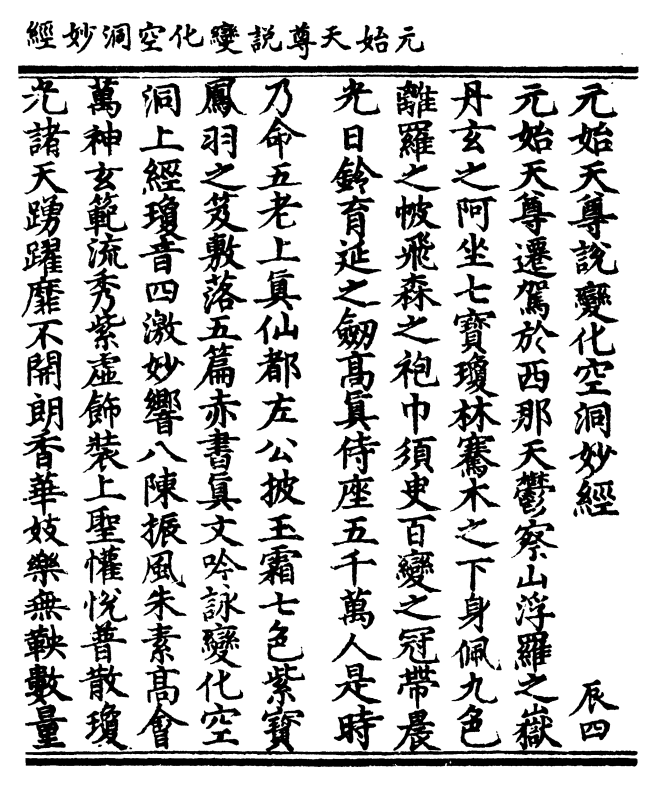 元始天尊說變化空洞妙經
元始天尊說變化空洞妙經 辰四
元始天尊遷駕於西那天鬱察山浮羅之嶽
丹玄之阿坐七寶瓊林騫木之下身佩九色
離羅之帔飛森之袍巾須臾百變之冠帶晨
光日鈴育延之劒高眞侍座五千萬人是時
乃命五老上眞仙都左公披玉霜七色紫寶
鳳羽之笈敷落五篇赤書眞文吟詠變化空
洞上經瓊音四激妙響八陳振風朱素高會
萬神玄範流秀紫虛飾裝上聖懽悅普散瓊
光諸天踴躍靡不開朗香華妓樂無鞅數量